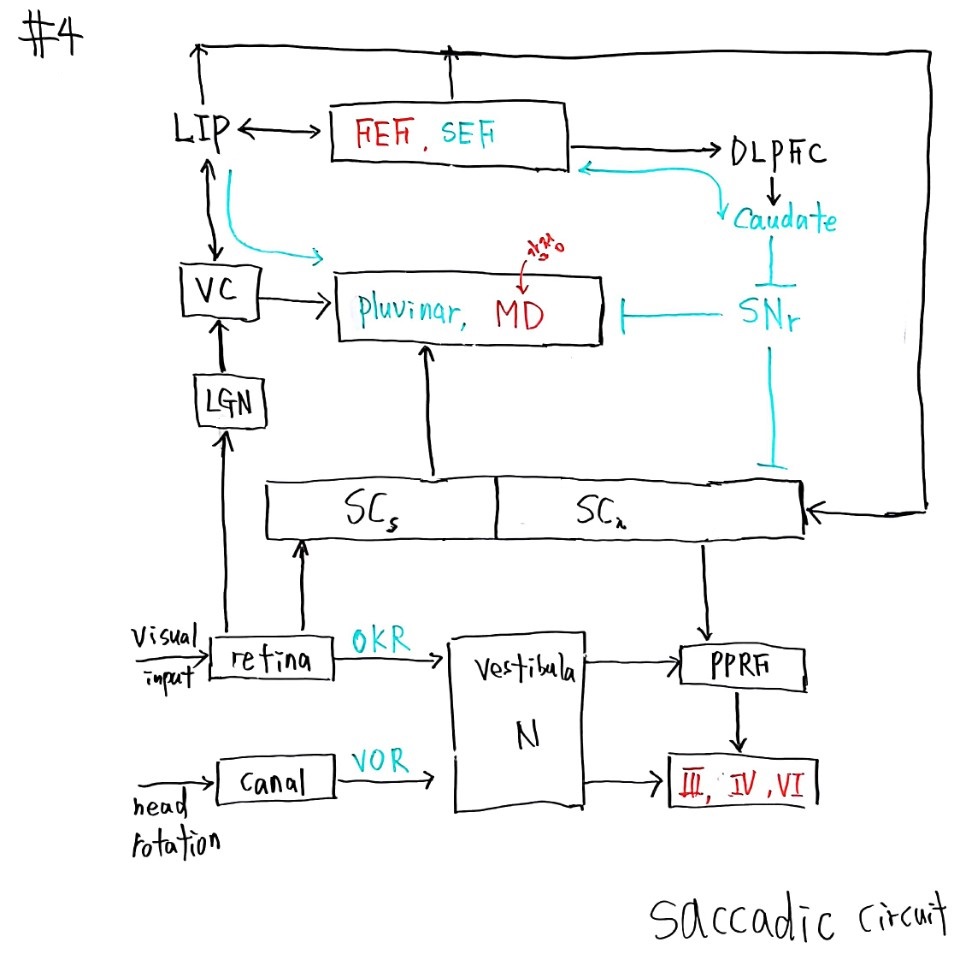 #4
LIP
FEF, SEF
DLPFC
Caudate
VC
pluvinar, MD
SNr
LGN
SCs
SCi
Visual
input
retina
OKR
Vestibula
N
PPRF
head
rotation
canal
VOR
III, IV, VI
Saccadic circuit